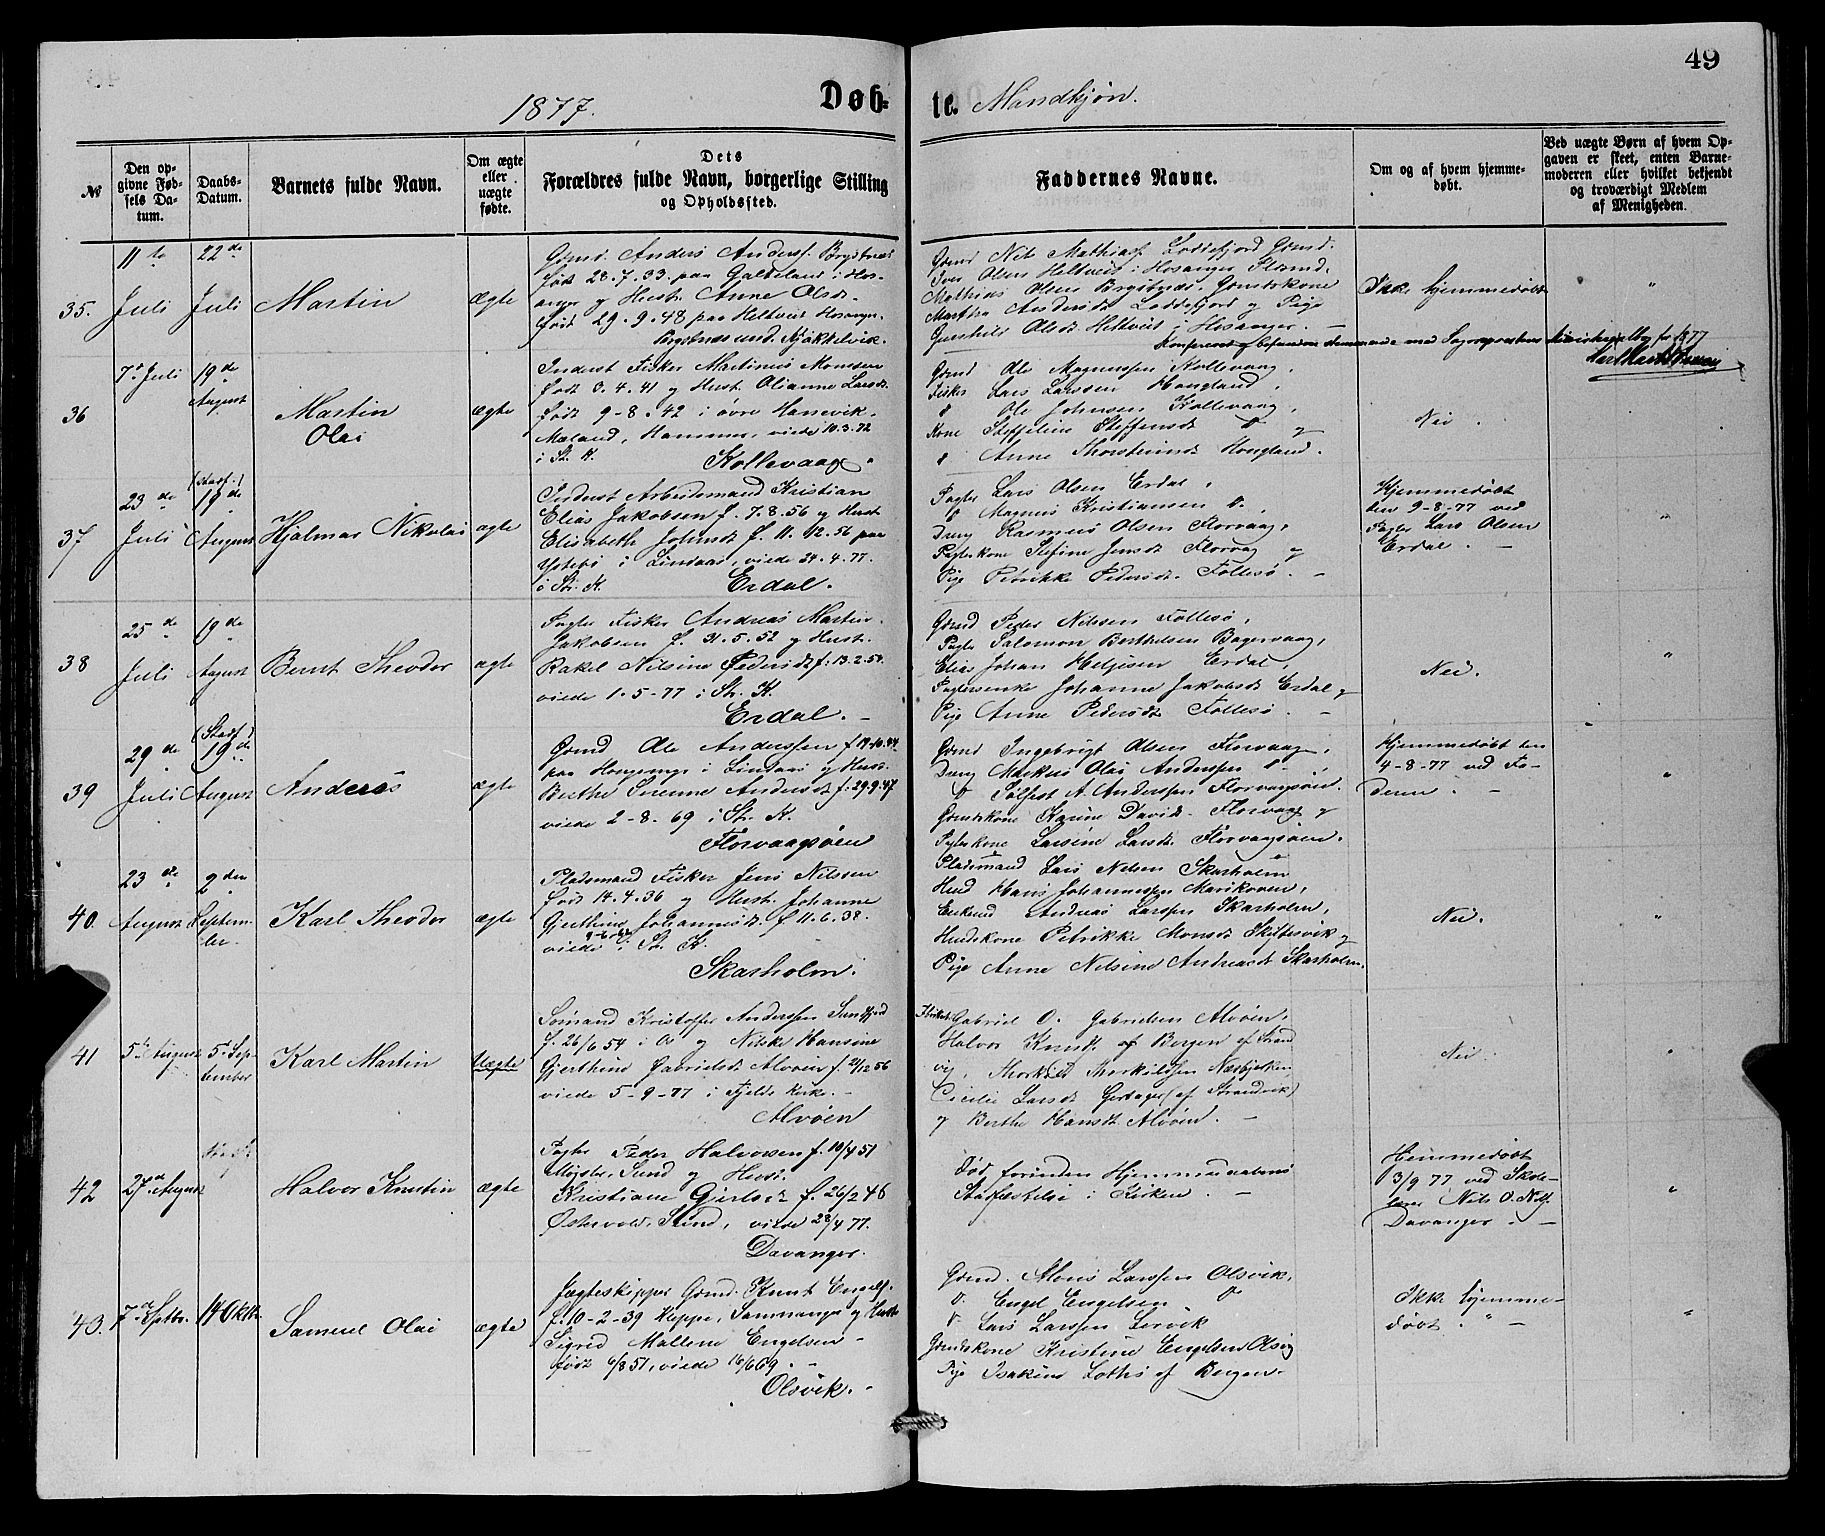 49
1877.
Døb-
te. Mandkjøn.
№
Den op-
givne Fød-
sels Da-
tum.
Daabs-
Datum.
Barnets fulde Navn.
Om ægte
eller
uægte
fødte.
Dets
Forældres fulde Navn, borgerlige Stilling
og Opholdssted.
Faddernes Navne.
Om og af hvem hjemme-
døbt.
Ved uægte Børn af hvem Op-
gaven er skeet, enten Barne-
moderen eller hvilket bekjendt
og troværdigt Medlem
af Menigheden.
35.
11te
Juli
22de
Juli
Martin
Ægte
Gmd. Anders Anderss. Brystnæs
født 28.7.33. paa Galteland i Hos-
anger og Hustr. Anne Olsdr.
født 29.9.48 paa Heltveit Hosanger.
Brystnæs und. Kjøkkelvik.
Gmd Nils Mathiass. Loddefjord Gmd.
Iver Olsen Heltveit i Hosanger
Mathias Olsen Brystnæs, Gmdskone
Martha Andersdt Loddefjord og Pige
Olsdt. Heltveit i Hosanger. —
Ikke hjemmedøbt
"
36
7de Juli
19de
August
Martin
Olai
ægte
Inderst Fisker Martinus Monssen
født 3.4.41 og Hust. Olianne Larsdt.
født 9-8.42 i øvre Hanevik.
Mæland, Hammer, viede 10.3.72
i St. K.
Kollevaag "
Gmd Ole Magnussen Kollevaag,
Fisker Lars Larssen Hougland,
" Ole Johnsen Kollevaag,
Kone Steffeline Steffensdt " og
" Anne Thorsteinsdt Hougland.
Nei.
37
23de
Juli
(Stadf.)
19de
August
Hjalmar Nikolai
ægte
Inderst Arbeidsmand Kristian
Elias Jakobsen f. 7.8.56 og Hust
Elisabeth Johnsdt f. 11.12.56 paa
Ystebø i Lindaas, viede 24.4.77.
i Str. K. Erdal.
Pagter Lars Olsen Erdal,
" Magnus Kristiansen D.,
Dreng Rasmus Olsen Florvaag,
Pagterskone Sefine Jensdt Florvag og
Pige Petrikke Pedersdt. Follesø. —
Hjemmedøbt
den 9-8-77 ved
Pagter Lars Olsen
Erdal. —
"
38
25de
Juli
19de
August
Bernt Theodor
ægte
Pagter Fisker Andreas Martin
Jakobsen f. 31.5.52 og Hust.
Rakel Nilsine Pedersdt f. 13.2.5
viede 1.5-77 i Str. K.
Erdal. —
Gmd Peder Nilssen Follesø,
Pagter Salomon Berthelsen Bagervaag,
Elias Johan Heljesen Erdal,
Pagterenke Johanne Jakobsdt Erdal og
Pige Anne Pedersdt Follesø. —
Nei.
"
39
29de
Juli
(Stadf.)
19de
August
Anders
ægte
Gmd Ole Anderssen f. 19.10.44
paa i Lindaas og Hust.
Berthe Serine Andersdt f. 29.9.47
viede 2-8-69 i Str. K.
Florvaagsøen
Gmd Ingebrigt Olsen Florvaag,
Dreng Markus Olai Anderssen D.,
D Solfest A. Anderssen Florvaagsøen.
Gmdskone Karine Davids. Florvaag og
Pagterkone Larsine Larsdt. Florvaagsøen.
Hjemmedøbt den
4-8-77 ved Fa-
deren. —
"
40.
23de
August
2den
Septem-
ber.
Karl Theodor
ægte
Pladsmand Fisker Jens Nilssen
født 14.4.36 og Hust. Johanne
Gjerthine Johannesdt f. 11.6.38.
viede i Str. K.
Skarholm.
Pladsmand Lars Nilsen Skarholm
Huusmd Hans Johannessen Marikoven,
Enkemd Andreas Larssen Skarholm,
Huuskone Petrikke Monsdt Skiftesvik og
Pige Anne Nilsine Andreasdt Skarholm.
Nei.
"
41
5te August
5te Sep-
tember
Karl Martin
Uægte
Sømand Kristoffer Anderssen Sundfjord
f. 26/6 54 i A og Nilsine Hansine
Gjerthine Gabrielsdt Alvøen f. 21/12 56
viede 5-9-77 i Fjelds Kirke. —
Alvøen
Gabriel O. Gabrielsen Alvøen,
Halvor Knuds. af Bergen af Strand
vig, Thorkild Thorkildsen
Cicilie Larsdt (af Strandvik)
og Berthe Hansdt Alvøen. —
Nei.
"
42
27de August
Halvor Knutin
ægte
Pagter Peder Halvorsen f. 10/4 51
Møgster, Sund og Hust.
Kristiane f. 26/2 46
Østervold, Sund, viede 28/4 77.
Davanger.
Død forinden Hjemmedaabens
Stadfæstelse i Kirken. —
Hjemmedøbt
3/9 77 ved Skole-
lærer Nils O.
Davanger. —
"
43.
7de Septbr.
14 Oktb.
Samuel Olai
ægte
Jægteskipper Gmd. Knut Engelss.
f. 10-2-39 Kleppe, Sammanger og Hustr
Sigrid Mallene Engelsen
født 6/8 51, viede 16/6 69. —
Olsvik. —
Gmd. Mons Larssen Olsvik,
D. Engel Engelsen D
D. Lars Larssen
Gmdskone Kristine Engelsen Olsvig
Pige Isakine Loths af Bergen.
Ikke hjemme-
døbt. —
"